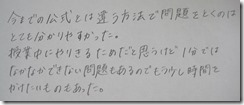 今までの公式とは違う方法で問題をとくのは
とても分かりやすかった。
授業中にやりきるためだと思うけど1分では
なかなかできない問題もあるのでもう少し時間を
かけたいものもあった。